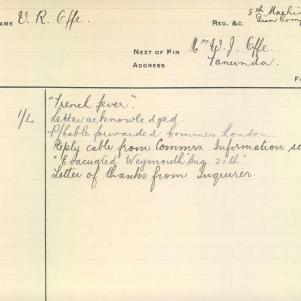 AME V. R. Offe. REG. &C. 8th Machi
Gun Comp
NEXT OF KIN Mrs W. J. Offe.
ADDRESS Tanunda.
F
"Trench fever".
1/L Letter acknowledged.
P/Cable forwarded Commrs. London.
Reply cable from Commrs. Information se
"Evacuated Weymouth Aug. 20th".
Letter of thanks from Inquirer.